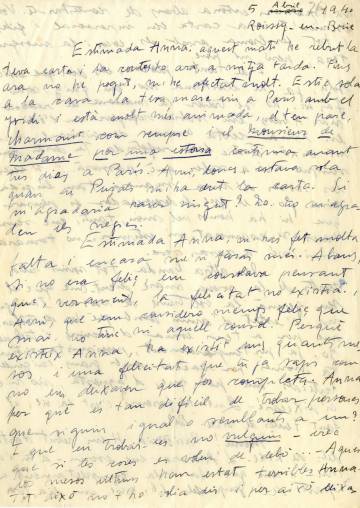 5 Abril 1940
Roissy-en-Brie
Estimada Anna, aquest matí he rebut la
teva carta i la contesto ara, a mitja tarda. Fins
ara no he pogut, m'ha afectat molt. Estic sola
a la casa. La teva mare viu a París amb el
Jordi i està molt més animada, el teu pare,
charmant com sempre i el monsieur de
Madame por una estona continua anant
tres dies a París. Avui, doncs, estava sola
quan m'ha dut la carta. Si
m'agradaria
les
Estimada Anna, m'has fet molta
falta i encara me'n faràs més. Abans,
si no era feliç em consolava pensant
que, verament, la felicitat no existia. i
Avui que em considero menys feliç que
mai no tinc ni aquell consol. Perquè
existeix Anna, ha existit uns quants me-
sos i una felicitat que tu ja saps com
no em deixaven que fos completa. Anna
per què és tan difícil de trobar persones
que siguin igual o semblants a un?
I que en trobar-les no vulguin - crec
que si les coses es volen de debò... - Aques
ts mesos últims han estat terribles Anna.
Tot això no t'ho volia dir i per això deixa